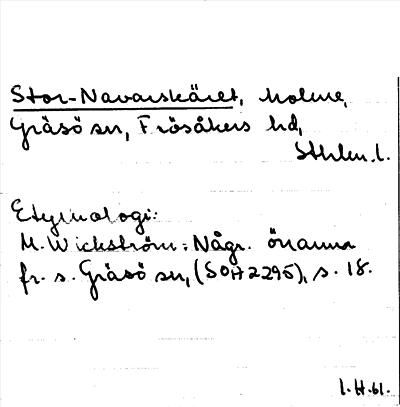 Stor-Navarskäret, holme,
Gräsö sn, Frösåkers hd,
Sthlm. l.
Etymologi:
M. Wickström: Några önamn
fr. s. Gräsö sn, (SOH 2295), s. 18.
1.H.61.